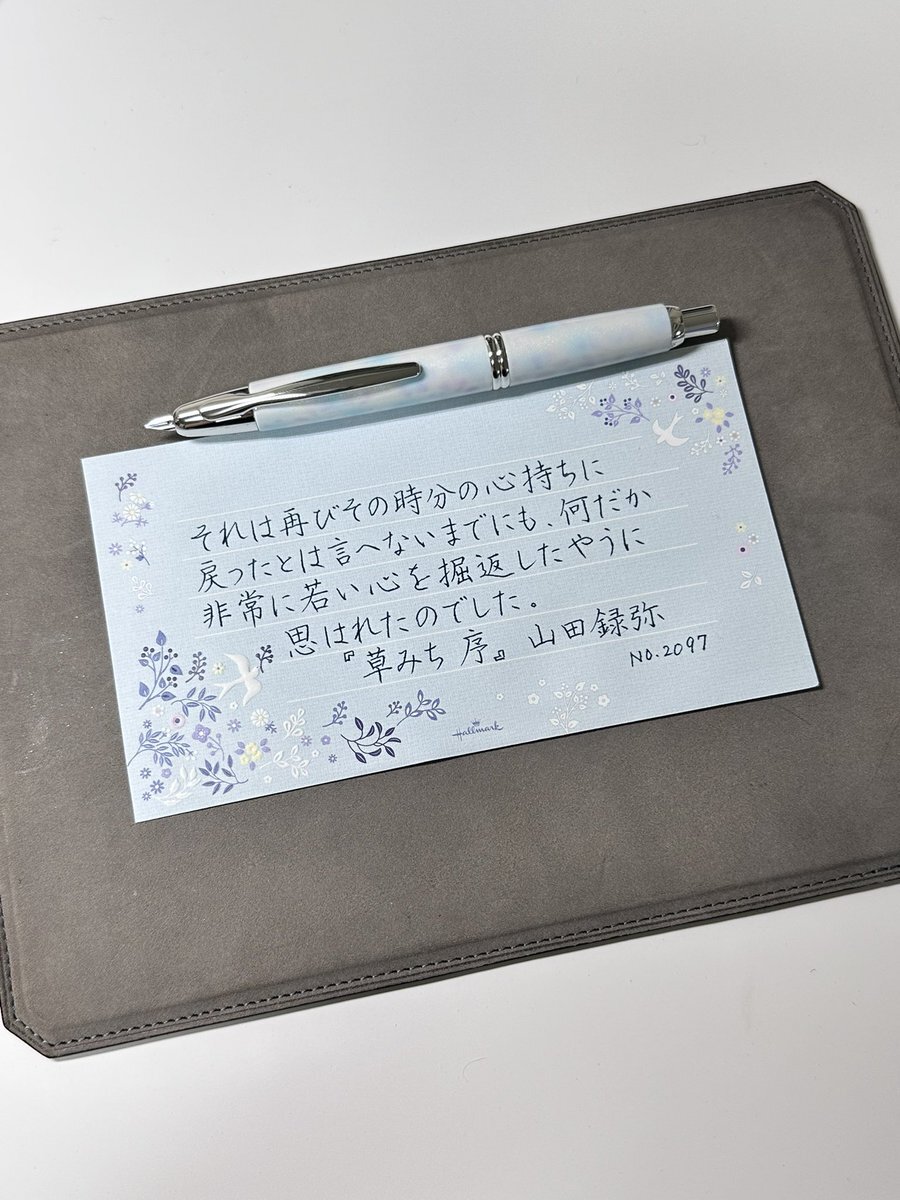 それは再びその時分の心持ちに
戻ったとは言へないまでにも、何だか
非常に若い心を掘返したやうに
思はれたのでした。
『草みち 序』 山田録弥
NO.2097
Hallmark